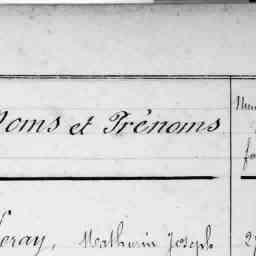 Noms et Prénoms
eray, Mathurin Joseph